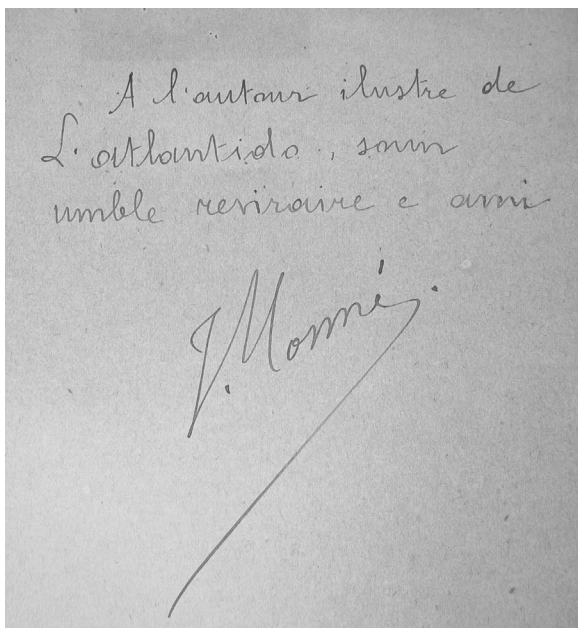 A l'autour ilustre de
L'atlantido, soun
umble reviraire e ami
J. Monné.